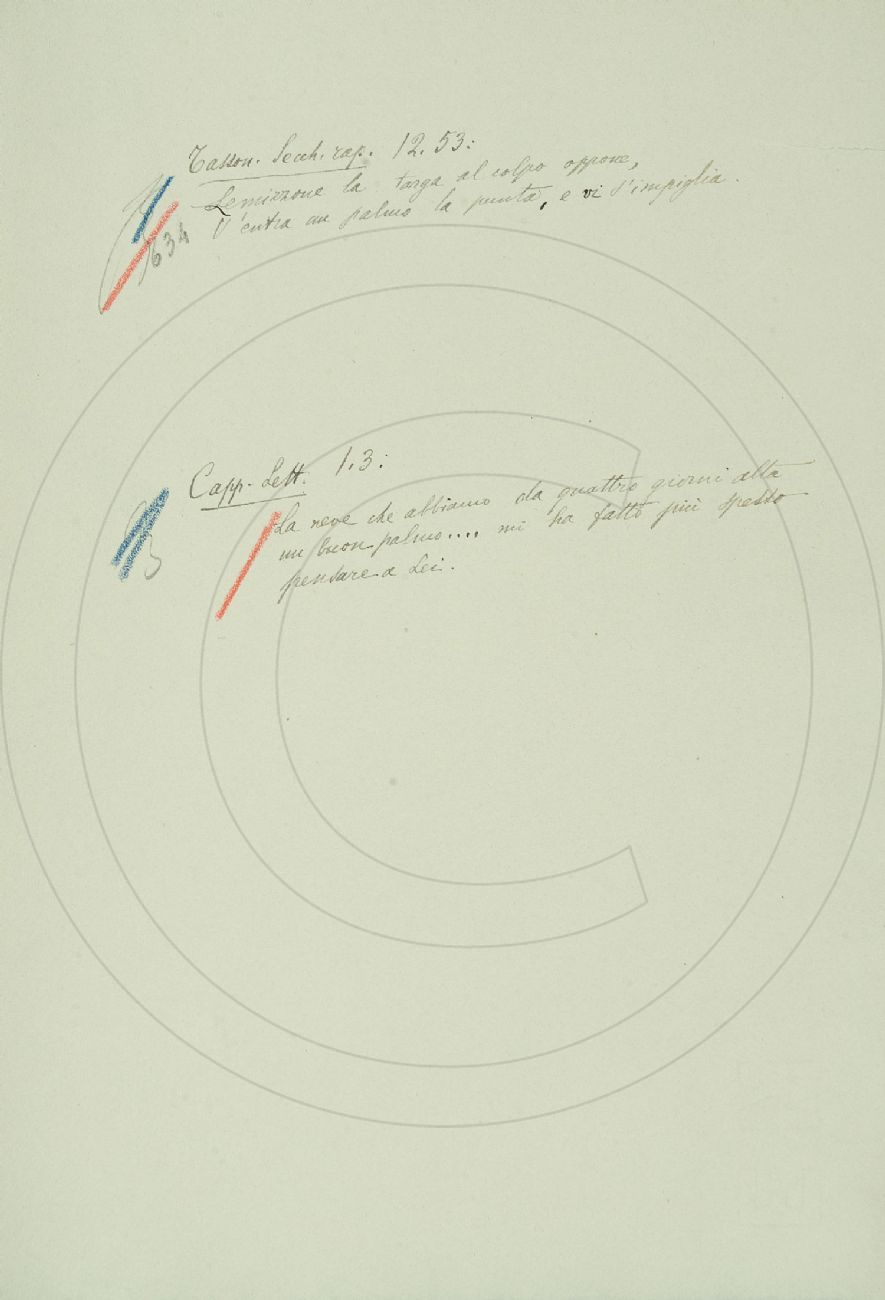 Tasson. Secch. rap. 12. 53:
Lemizzone la targa al colpo oppone,
V'entra un palmo la punta, e vi s'impiglia.
634
Capp. Lett. 1. 3:
La neve che abbiamo da quattro giorni alta
un buon palmo.... mi ha fatto più spesso
pensare a Lei.